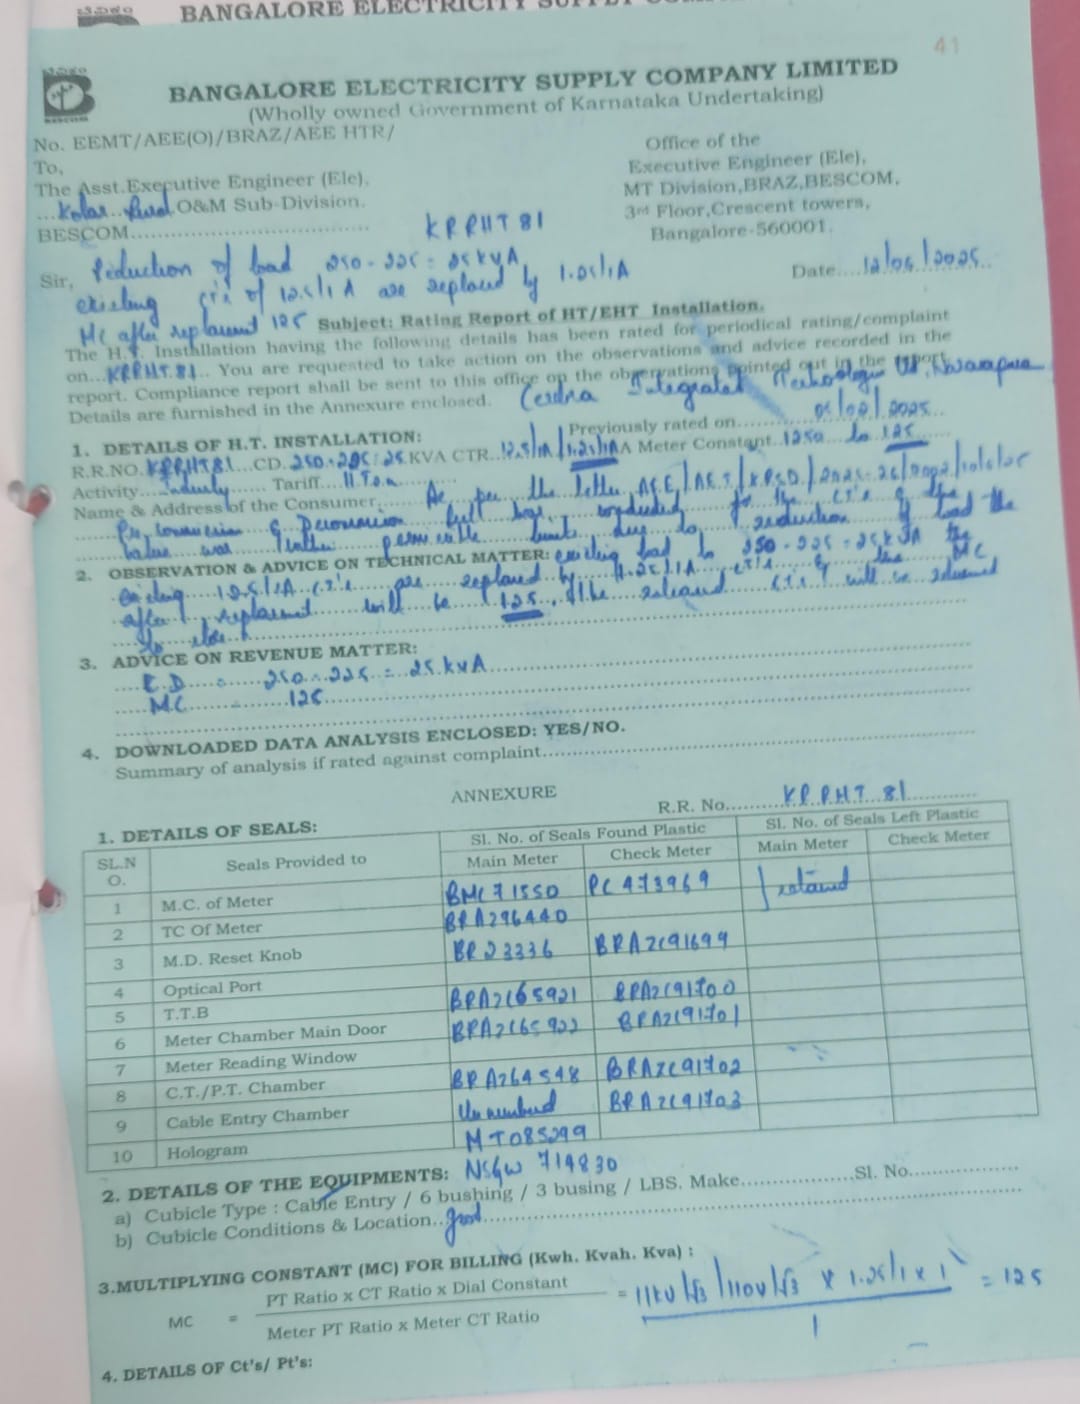 BANGALORE ELECTRICITY
41
BESCOM
BANGALORE ELECTRICITY SUPPLY COMPANY LIMITED
(Wholly owned Government of Karnataka Undertaking)
No. EEMT/AEE(O)/BRAZ/AEE HTR/
Office of the
Executive Engineer (Ele),
MT Division,BRAZ,BESCOM,
3rd Floor,Crescent towers,
Bangalore-560001.
To,
The Asst.Executive Engineer (Ele),
Kolar Rural O&M Sub-Division.
BESCOM
KRRHT 81
Date 12/06/2025
Sir, Reduction of load 250-225 = 25 kVA
existing CT's of 12.5/1 A are replaced by 1.25/1A
MC after replacement 125
Subject: Rating Report of HT/EHT Installation.
The H.T. Installation having the following details has been rated for periodical rating/complaint
on KRRHT 81 You are requested to take action on the observations and advice recorded in the
report. Compliance report shall be sent to this office on the observations pointed out in the report.
Details are furnished in the Annexure enclosed.
Integrated
1. DETAILS OF H.T. INSTALLATION:
Previously rated on 2025
R.R.NO. KRRHT81 CD. 250-225=25 KVA CTR 12.5/1A / 1.25/1A A Meter Constant 1250 to 125
Activity Industry Tariff
Name & Address of the Consumer As per the letter
the CT's of the
value was permissible limits due to reduction of load the
2. OBSERVATION & ADVICE ON TECHNICAL MATTER: existing load to 250-225=25 kVA the
existing 12.5/1A CT's are replaced by 1.25/1A CT's & the MC
after replacement will be 125. The released CT's will be returned
to
3. ADVICE ON REVENUE MATTER:
C.D 250-225 = 25 kVA
MC 125
4. DOWNLOADED DATA ANALYSIS ENCLOSED: YES/NO.
Summary of analysis if rated against complaint
ANNEXURE
R.R. No. KRRHT 81
1. DETAILS OF SEALS:
SL.NO. Seals Provided to Sl. No. of Seals Found Plastic Sl. No. of Seals Left Plastic
Main Meter Check Meter Main Meter Check Meter
1 M.C. of Meter BMC 71550 PC 473969 retained
2 TC Of Meter BRA296440
3 M.D. Reset Knob BR 23336 BRAZC91699
4 Optical Port
5 T.T.B BRAZC65921 BRAZC91700
6 Meter Chamber Main Door BRAZC65922 BRAZC91701
7 Meter Reading Window
8 C.T./P.T. Chamber BRAZ64548 BRAZC91702
9 Cable Entry Chamber Unnumbered BRAZC91703
10 Hologram MT085299
2. DETAILS OF THE EQUIPMENTS: NSGW 714830
a) Cubicle Type : Cable Entry / 6 bushing / 3 busing / LBS. Make Sl. No.
b) Cubicle Conditions & Location good
3.MULTIPLYING CONSTANT (MC) FOR BILLING (Kwh. Kvah. Kva) :
MC = PT Ratio x CT Ratio x Dial Constant = 11kV/√3 /110V/√3 x 1.25/1 x 1 = 125
Meter PT Ratio x Meter CT Ratio 1
4. DETAILS OF Ct's/ Pt's: